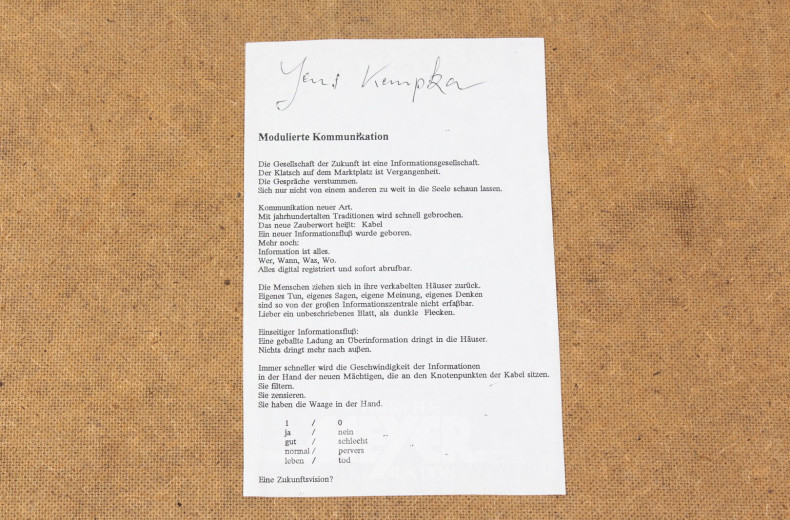 Jens Kempka
Modulierte Kommunikation
Die Gesellschaft der Zukunft ist eine Informationsgesellschaft.
Der Klatsch auf dem Marktplatz ist Vergangenheit.
Die Gespräche verstummen.
Sich nur nicht von einem anderen zu weit in die Seele schaun lassen.
Kommunikation neuer Art.
Mit jahrhundertalten Traditionen wird schnell gebrochen.
Das neue Zauberwort heißt: Kabel
Ein neuer Informationsfluß wurde geboren.
Mehr noch:
Information ist alles.
Wer, Wann, Was, Wo.
Alles digital registriert und sofort abrufbar.
Die Menschen ziehen sich in ihre verkabelten Häuser zurück.
Eigenes Tun, eigenes Sagen, eigene Meinung, eigenes Denken
sind so von der großen Informationszentrale nicht erfaßbar.
Lieber ein unbeschriebenes Blatt, als dunkle Flecken.
Einseitiger Informationsfluß:
Eine geballte Ladung an Überinformation dringt in die Häuser.
Nichts dringt mehr nach außen.
Immer schneller wird die Geschwindigkeit der Informationen
in der Hand der neuen Mächtigen, die an den Knotenpunkten der Kabel sitzen.
Sie filtern.
Sie zensieren.
Sie haben die Waage in der Hand.
1 / 0
ja / nein
gut / schlecht
normal / pervers
leben / tod
Eine Zukunftsvision?